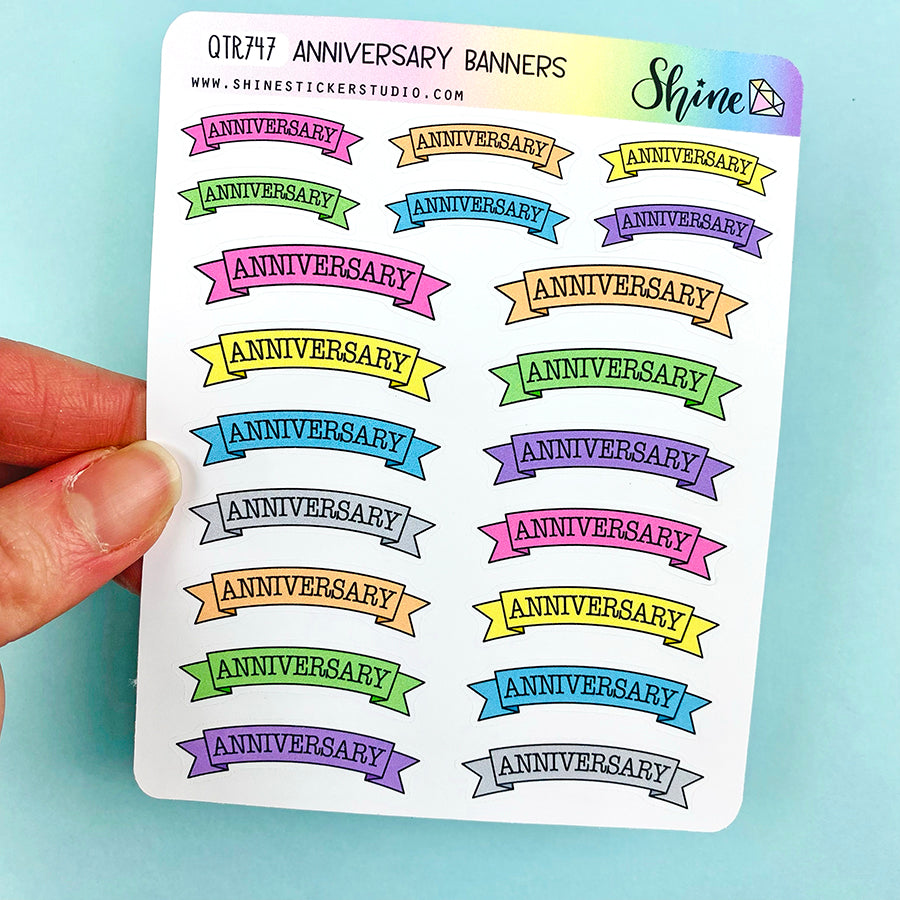 QTR747 ANNIVERSARY BANNERS
WWW.SHINESTICKERSTUDIO.COM
Shine
ANNIVERSARY ANNIVERSARY ANNIVERSARY
ANNIVERSARY ANNIVERSARY ANNIVERSARY
ANNIVERSARY ANNIVERSARY
ANNIVERSARY ANNIVERSARY
ANNIVERSARY ANNIVERSARY
ANNIVERSARY ANNIVERSARY
ANNIVERSARY ANNIVERSARY
ANNIVERSARY ANNIVERSARY
ANNIVERSARY ANNIVERSARY